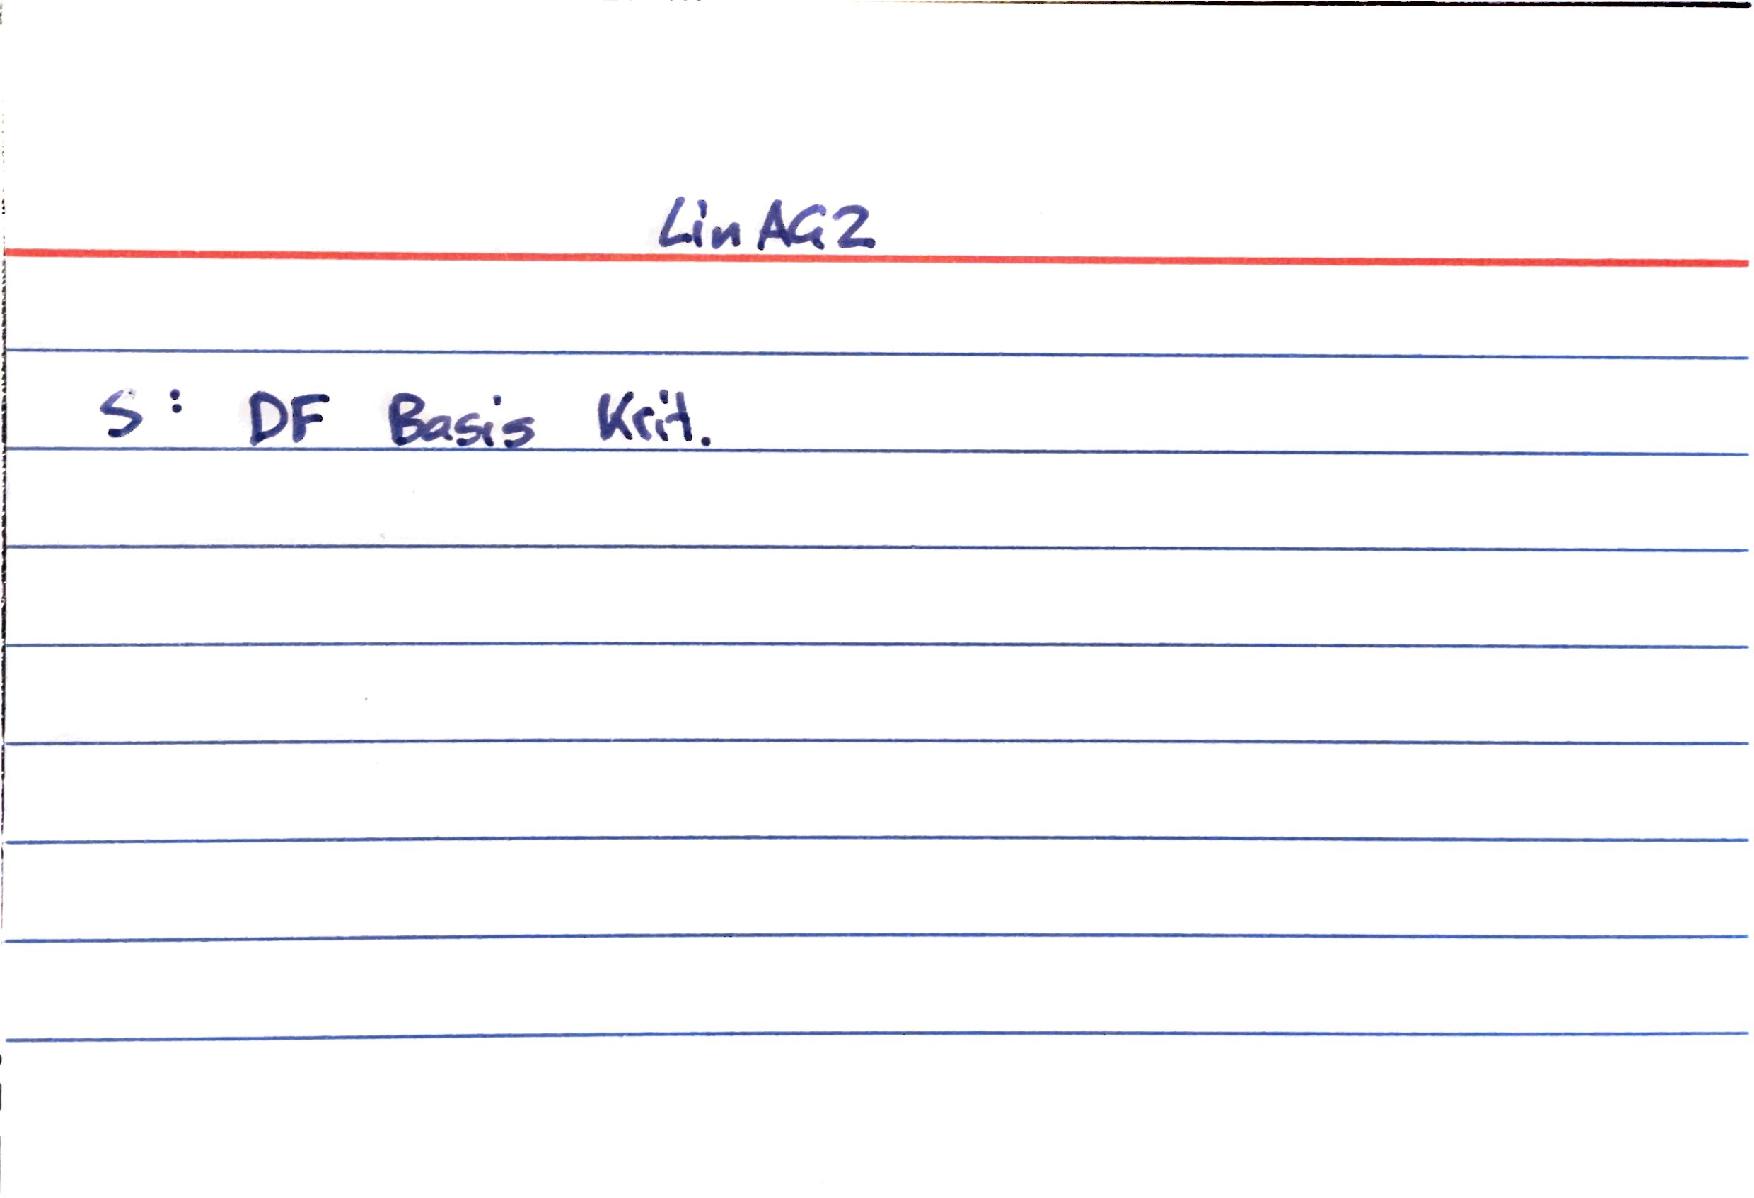 LinAG2
S: DF Basis Krit.